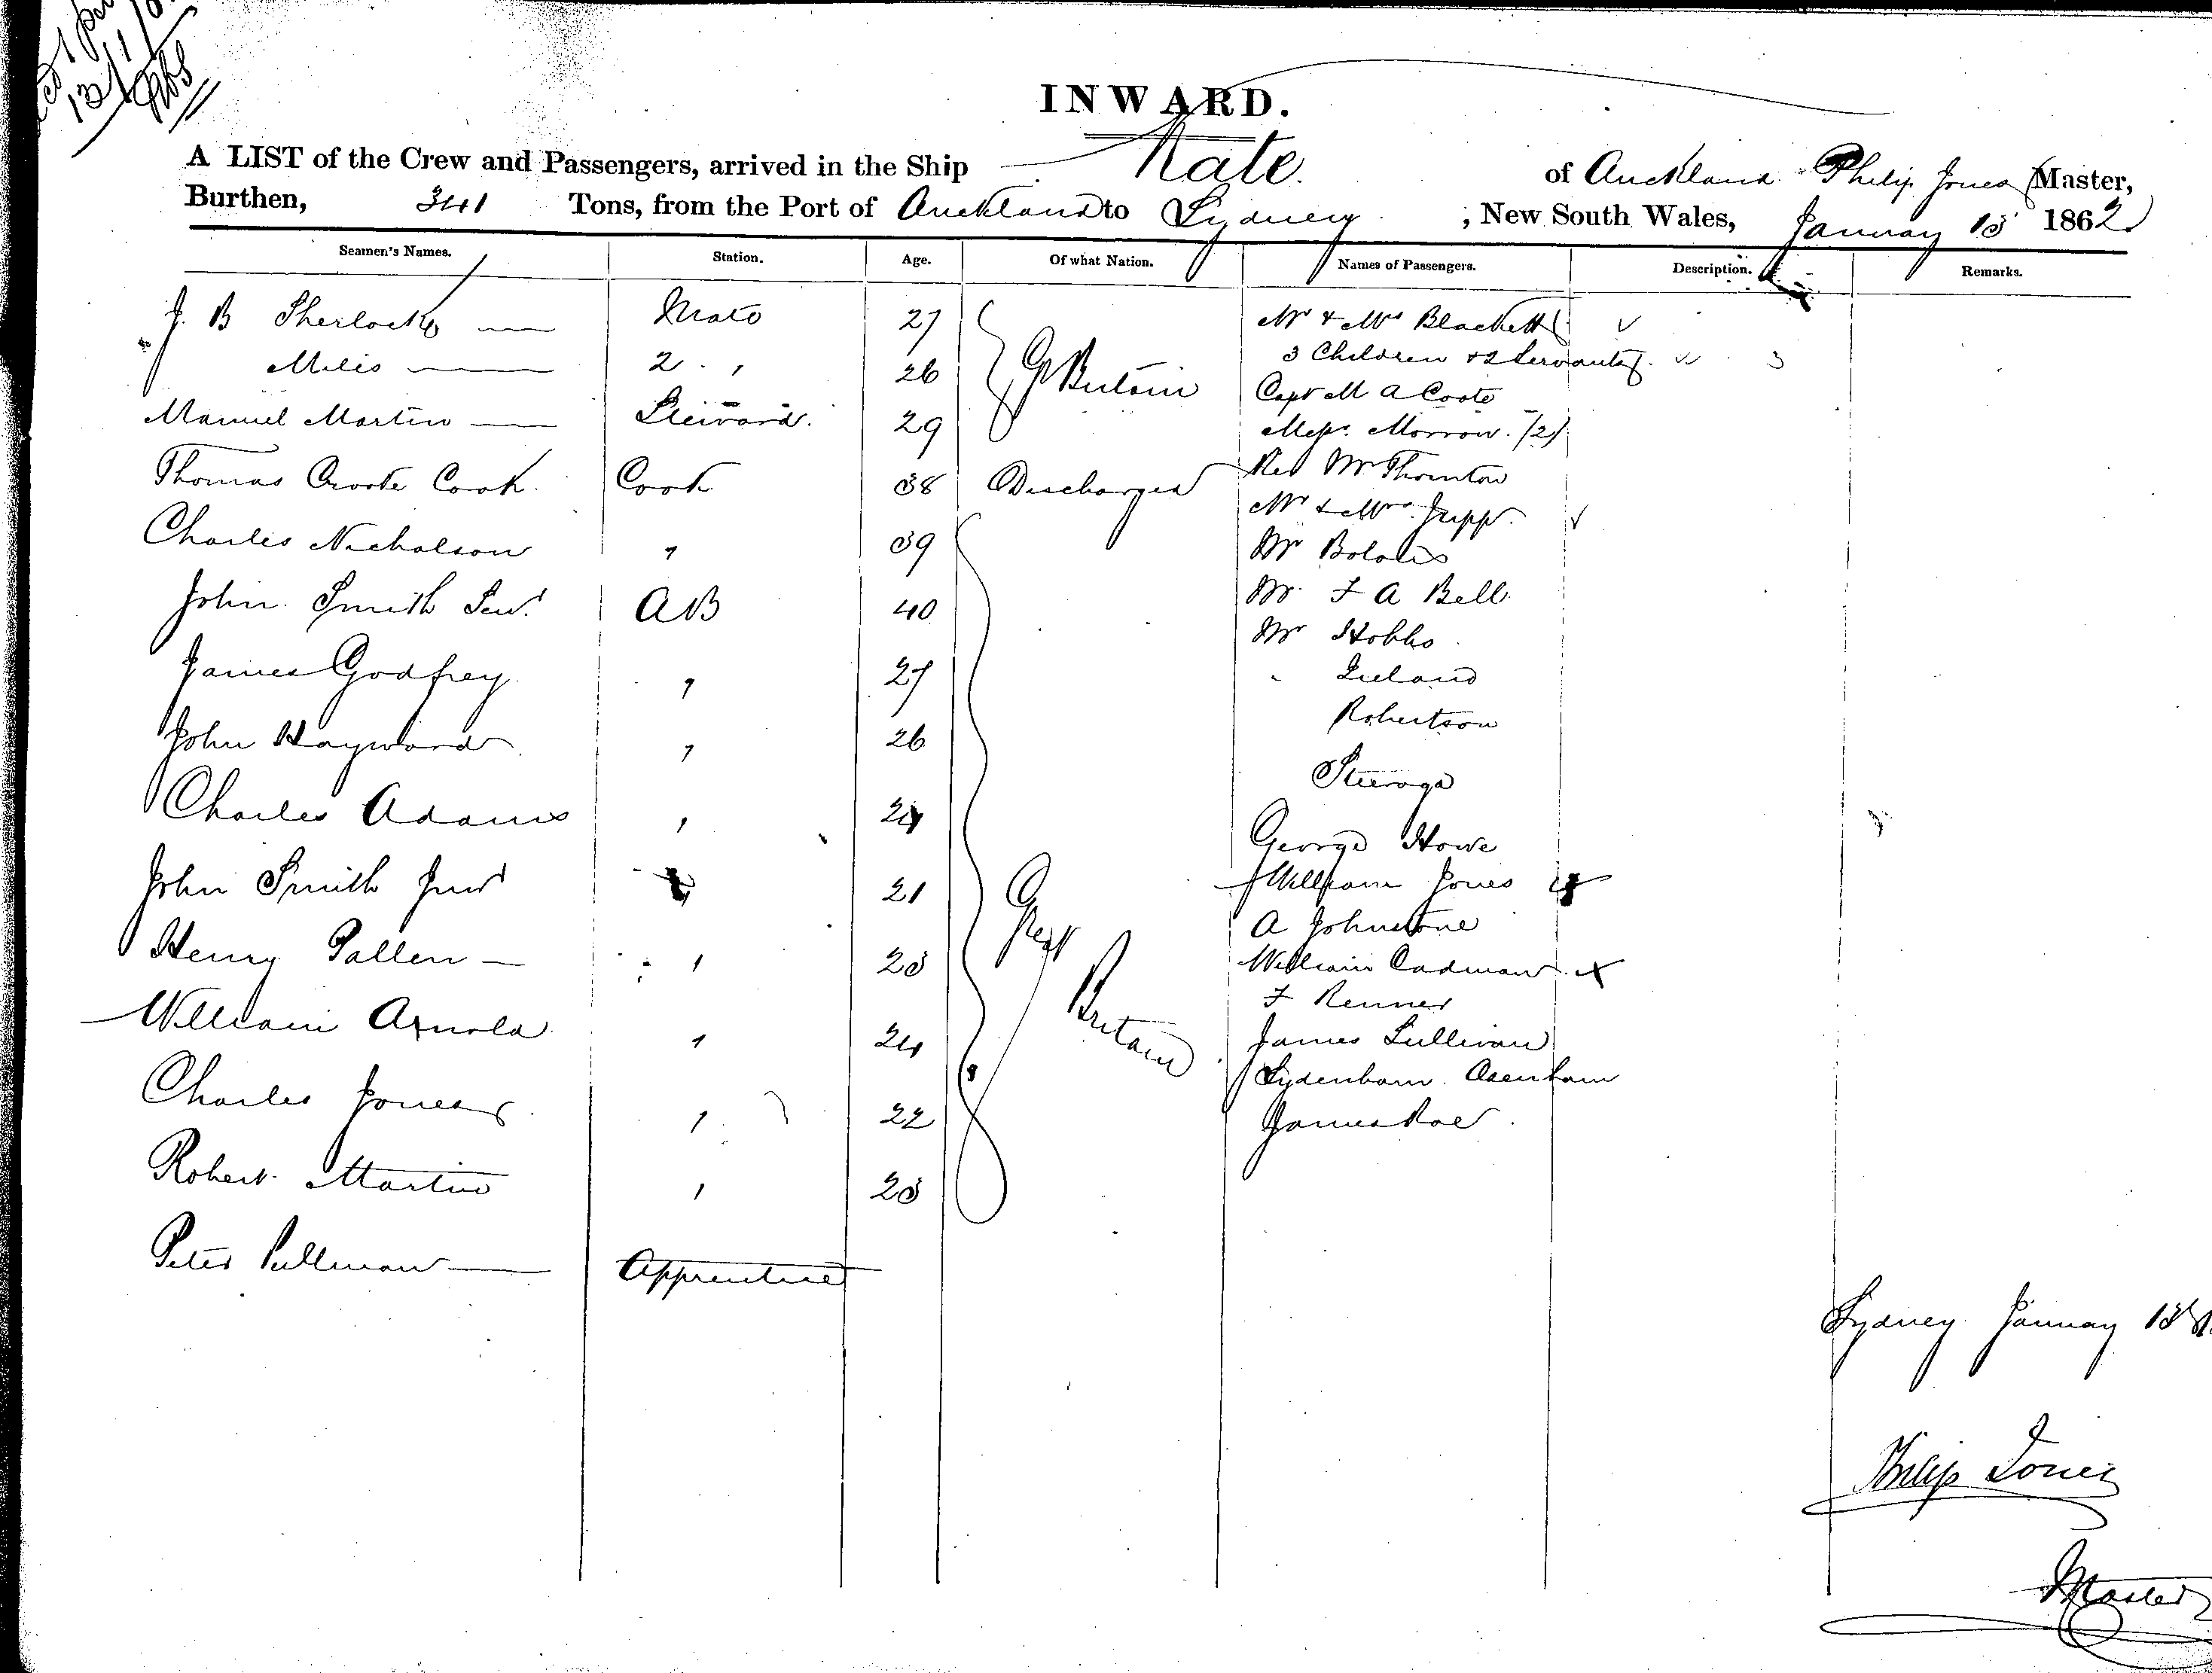 INWARD.
A LIST of the Crew and Passengers, arrived in the Ship Kate. of Auckland Philip Jones Master,
Burthen, 341 Tons, from the Port of Auckland to Sydney, New South Wales, January 13 1862
Seamen's Names. Station. Age. Of what Nation. Names of Passengers. Description. Remarks.
J. B Sherlock Mate 27 Mr & Mrs Blackett
Miles 2 " 26 Gt Britain 3 Children & 2 Servants 3
Capt M A Coote
Manuel Martin Steward. 29 Messrs. Morrow. (2)
Thomas Cook. Cook 38 Discharged Rev Mr Thornton
Mr & Mrs Jupp.
Charles Nicholson " 39 Mr
John Smith Senr AB 40 Mr. F A Bell
Mr Hobbs
James Godfrey " 27 " Leland
Robertson
John Hayward " 26
Steerage
Charles Adams " 24 George Howe
John Smith Junr 21 Great William Jones
A Johnstone
Henry Pallen " 23 Britain William Cadman
F Renner
William Arnold " 24 James Sullivan
Sydenham
Charles Jones " 22 James Roe
Robert Martin " 23
Peter Pullman Apprentice
Sydney January 13
Philip Jones
Master